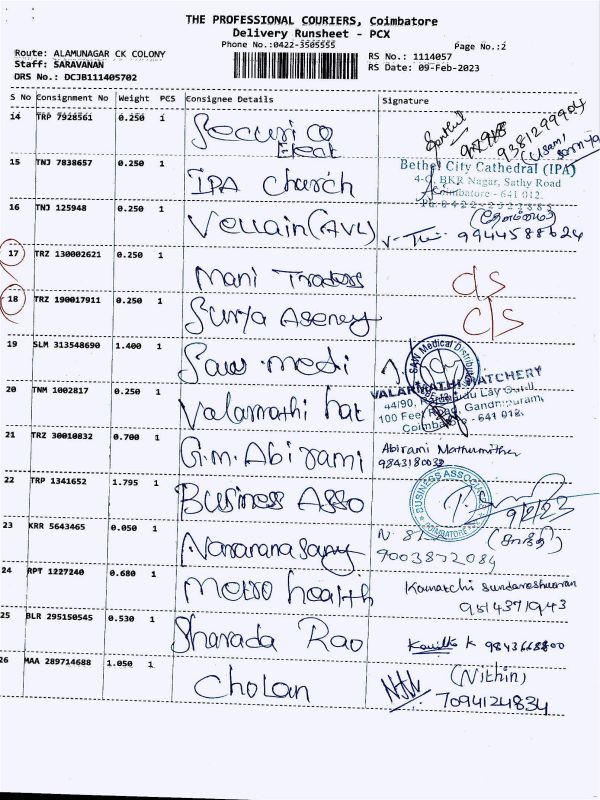 THE PROFESSIONAL COURIERS, Coimbatore
Delivery Runsheet - PCX
Phone No.:0422-3505555
Page No.:2
Route: ALAMUNAGAR CK COLONY
Staff: SARAVANAN
DRS No.: DCJB111405702
RS No.: 1114057
RS Date: 09-Feb-2023
S No Consignment No Weight PCS Consignee Details Signature
14 TRP 7928561 0.250 1 Securico
Elect
9381299904
15 TNJ 7838657 0.250 1 IPA Church
Bethel City Cathedral (IPA)
4-C, BKR Nagar, Sathy Road
Coimbatore - 641 012.
16 TNJ 125948 0.250 1 Vellain (AVL)
9944588624
17 TRZ 130002621 0.250 1 Mani Traders
18 TRZ 190017911 0.250 1 Surya Agency c/s
19 SLM 313548690 1.400 1 Saw medi
SAW Medical Distributors
20 TNM 1002817 0.250 1 Valarmathi hat
VALARMATHI HATCHERY
100 Feet Road, Gandhipuram,
Coimbatore - 641 012.
21 TRZ 30010832 0.700 1 G.M. Abirami
Abirami Mathumitha
9843180032
22 TRP 1341652 1.795 1 Business Asso
BUSINESS ASSOCIATES
COIMBATORE
9/2/23
23 KRR 5643465 0.050 1 Narayanasamy
9003872084
24 RPT 1227240 0.680 1 Metro health
Kamatchi Sundareshwaran
9514371943
25 BLR 295150545 0.530 1 Sharada Rao
K 9843668800
26 MAA 289714688 1.050 1 Cholan
(Nithin)
7094124834